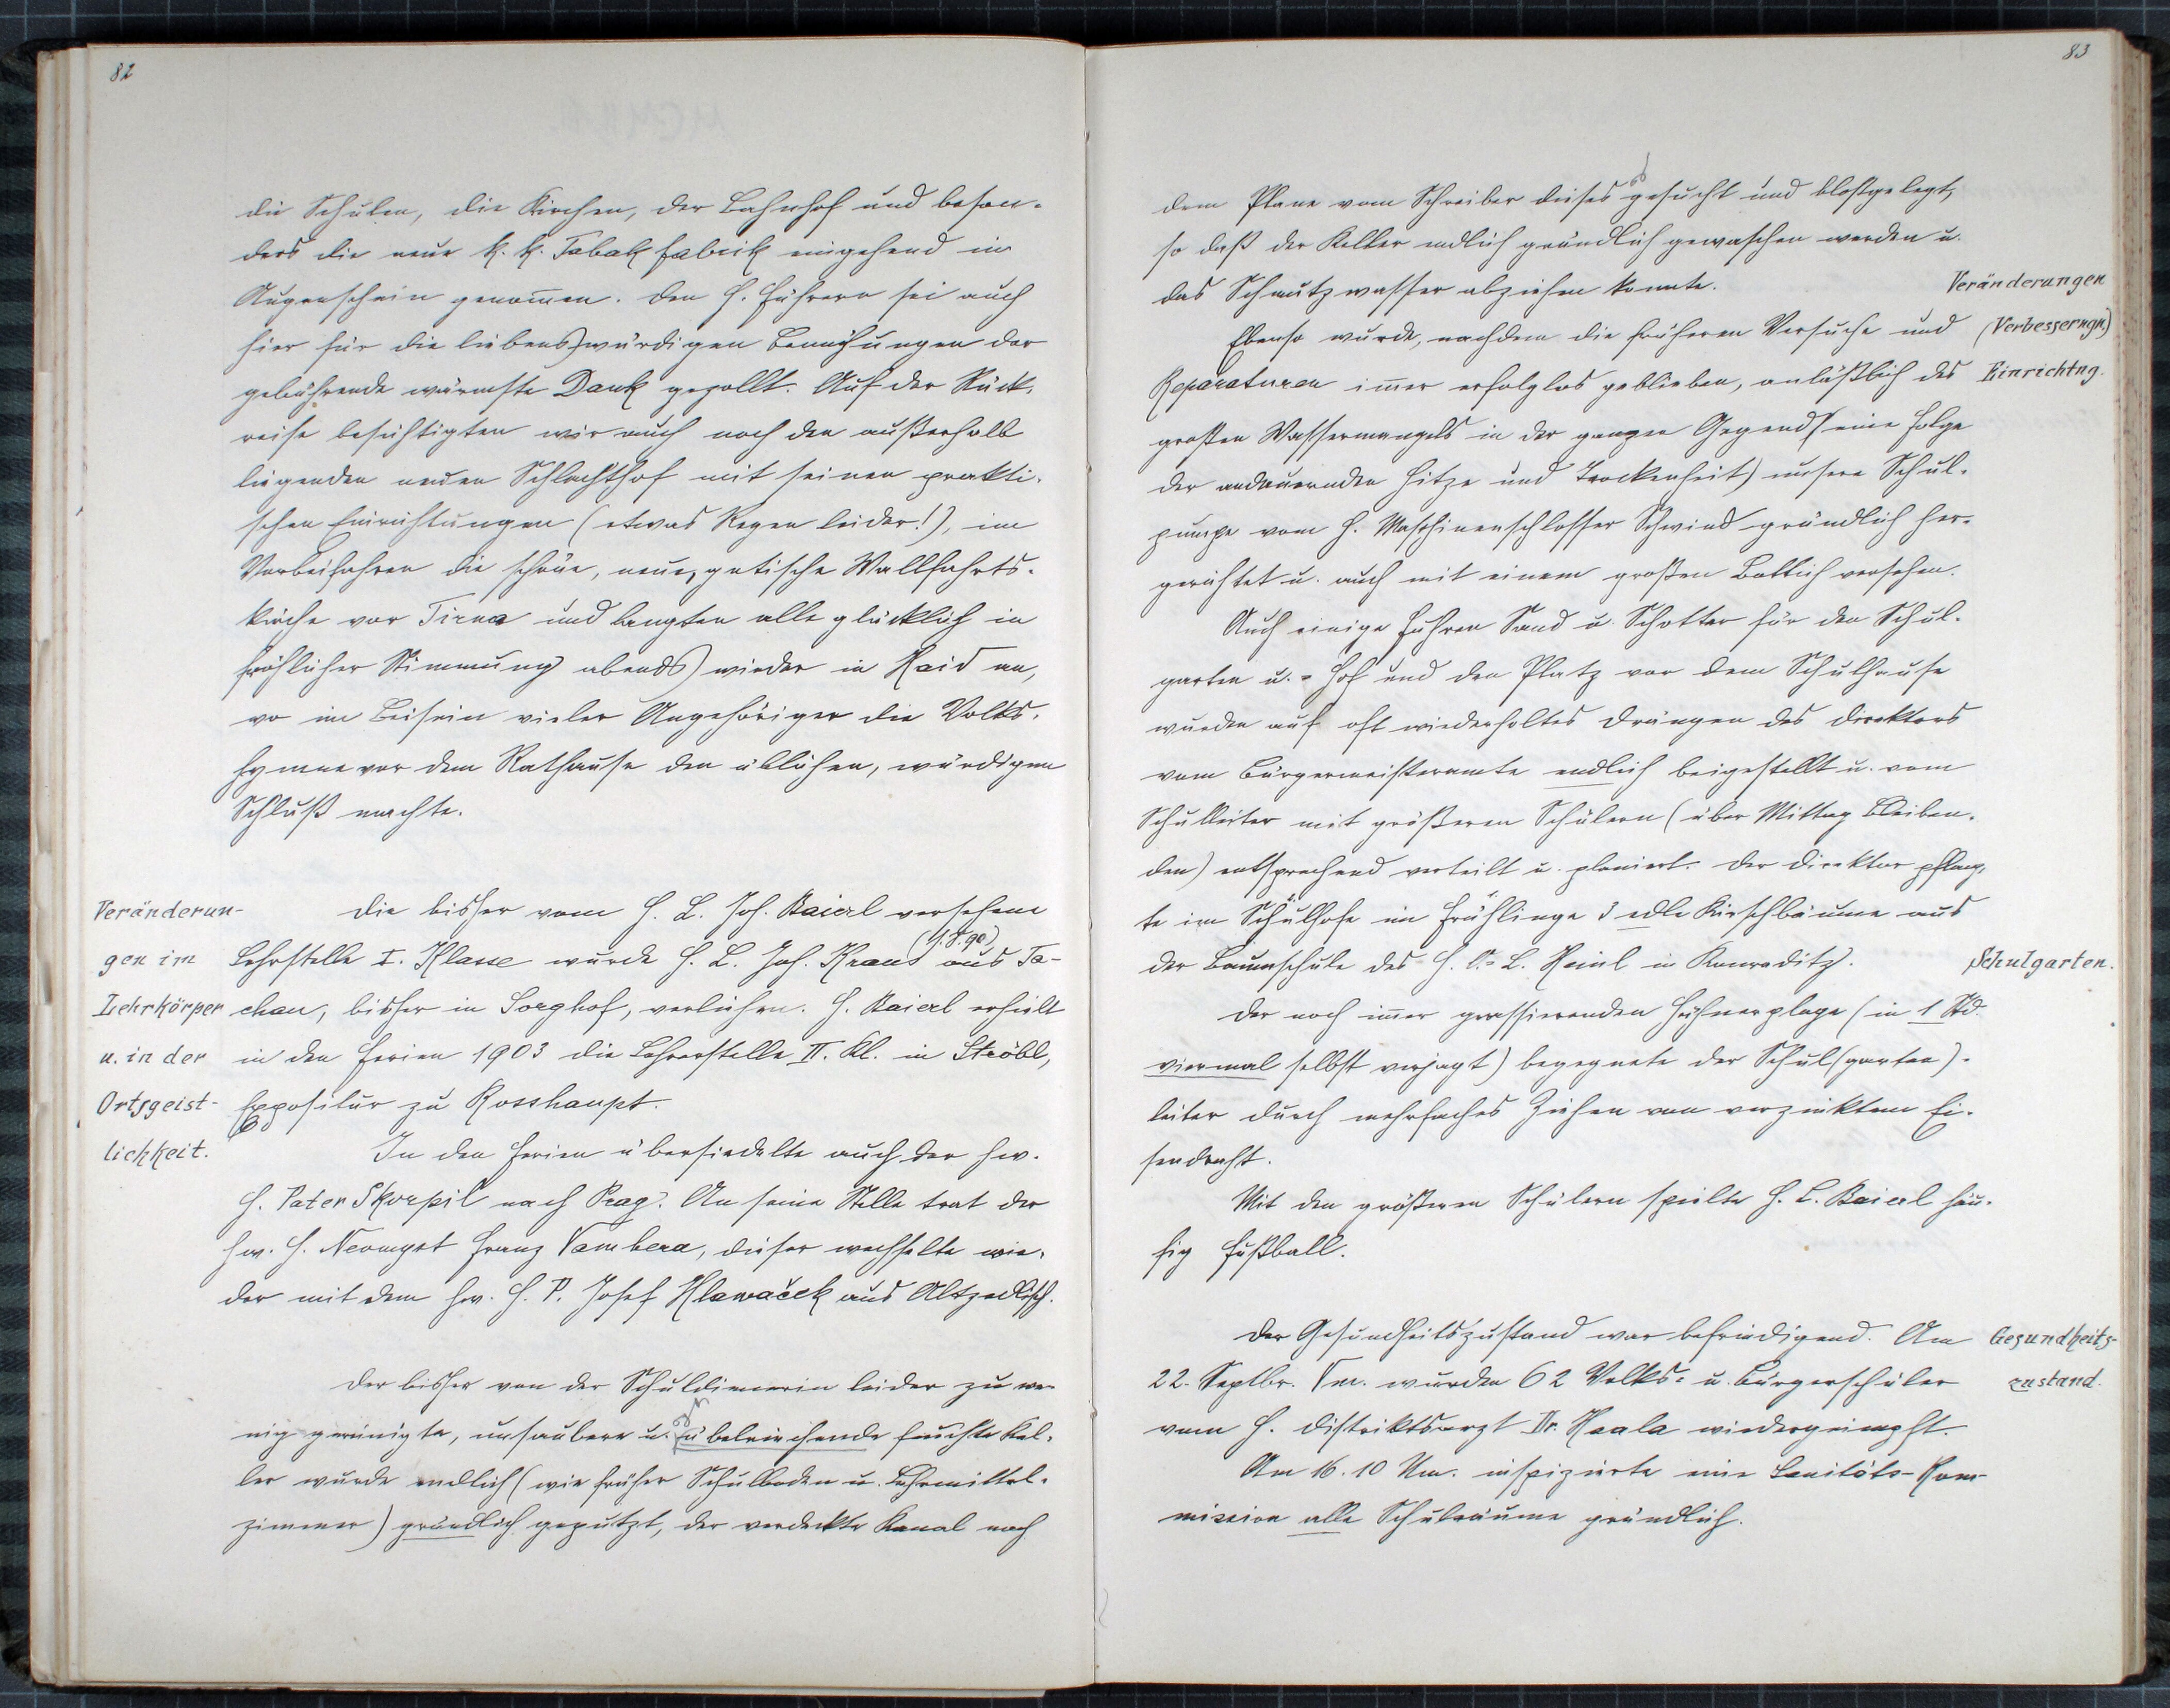 82
die Schulen, die Kirchen, der Bahnhof und beson-
ders die neue k. k. Tabakfabrik eingehend in
Augenschein genommen. Den H. Führern sei auch
hier für die liebenswürdigen Bemühungen der
gebührende wärmste Dank gezollt. Auf der Rück-
reise besichtigten wir auch noch den außerhalb
liegenden neuen Schlachthof mit seinen prakti-
schen Einrichtungen (etwas Regen leider!), im
Vorbeifahren die schöne, neue, gotische Wallfahrts-
kirche vor Tirna und langten alle glücklich in
fröhlicher Stimmung abends wieder in Haid an,
wo im Beisein vieler Angehöriger die Volks-
hymne vor dem Rathause den üblichen, würdigen
Schluß machte.
Veränderun-
gen im
Lehrkörper
u. in der
Ortsgeist-
lichkeit.
Die bisher vom H. L. Joh. Baierl versehene
Lehrstelle I. Klasse wurde H. L. Joh. Kraus aus Ta-
chau, bisher in Sorghof, verliehen. H. Baierl erhielt
in den Ferien 1903 die Lehrerstelle II. Kl. in Ströbl,
Expositur zu Rosshaupt.
In den Ferien übersiedelte auch der hw.
H. Pater Skorpil nach Prag. An seine Stelle trat der
hw. H. Neomyst Franz Vambera, dieser wechselte wie-
der mit dem hw. H. P. Josef Hlawaček aus Altzedlisch.
Der bisher von der Schuldienerin leider zu we-
nig gereinigte, unsaubere u. übelriechende feuchte Kel-
ler wurde endlich (wie früher Schulboden u. Lehrmittel-
zimmer) gründlich geputzt, der verdeckte Kanal nach
83
dem Plane vom Schreiber dieses gesucht und bloßgelegt,
so daß der Keller endlich gründlich gewaschen werden u.
das Schmutzwasser abziehen konnte.
Veränderungen
(Verbesserngn.)
Einrichtng.
Ebenso wurde, nachdem die früheren Versuche und
Reparaturen immer erfolglos geblieben, anläßlich des
großen Wassermangels in der ganzen Gegend (eine Folge
der andauernden Hitze und Trockenheit) unsere Schul-
pumpe vom H. Maschinenschlosser Schwind gründlich her-
gerichtet u. auch mit einem großen Bottich versehen.
Auch einige Fuhren Sand u. Schotter für den Schul-
garten u. -Hof und den Platz vor dem Schulhause
wurden auf oft wiederholtes Drängen des Direktors
vom Bürgermeisteramte endlich beigestellt u. vom
Schulleiter mit größeren Schülern (über Mittag Bleiben-
den) entsprechend verteilt u. planiert. Der Direktor pflanz-
te im Schulhofe im Frühlinge 3 edle Kirschbäume aus
der Baumschule des H. O.-L. Heinl in Konraditz.
Schulgarten.
Der noch immer grassierenden Hühnerplage (in 1 Std.
viermal selbst verjagt) begegnete der Schul(garten)-
leiter durch mehrfaches Ziehen von verzinktem Ei-
sendraht.
Mit den größeren Schülern spielte H. L. Baierl häu-
fig Fußball.
Der Gesundheitszustand war befriedigend. Am
Gesundheits-
zustand.
22. Septbr. Vm. wurden 62 Volks- u. Bürgerschüler
vom H. Distriktsarzt Dr. Haala wiedergeimpft.
Am 16. 10 Nm. inspizierte eine Sanitäts-Kom-
mission alle Schulräume gründlich.